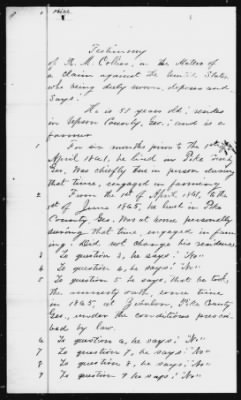 Testimony
of R. M. Collier, in the Matter of
a claim against the United States
who being duly sworn, deposes and
Says:
He is 51 years old; resides
in Upson County, Geo.; and is a
farmer
1 For six months prior to the 1st
April 1861, he lived in Pike County
Geo. Was chiefly there in person during
that time, engaged in farming
2 From the 1st of April, 1861, to the
1st of June 1865, he lived in Pike
County, Geo. Was at home personally
during that time, engaged in farm-
ing. Did not change his residence
3 To question 3, he says: "No"
4 To question 4, he says: "No"
5 To question 5 he says, that he took,
the amnesty oath, some time
in 1865, at Zebulon, Pike County
Geo., under the conditions prescri-
bed by law.
6 To question 6, he says: "No"
7 To question 7, he says: "No"
8 To question 8, he says: "No"
9 To question 9 he says: "No"